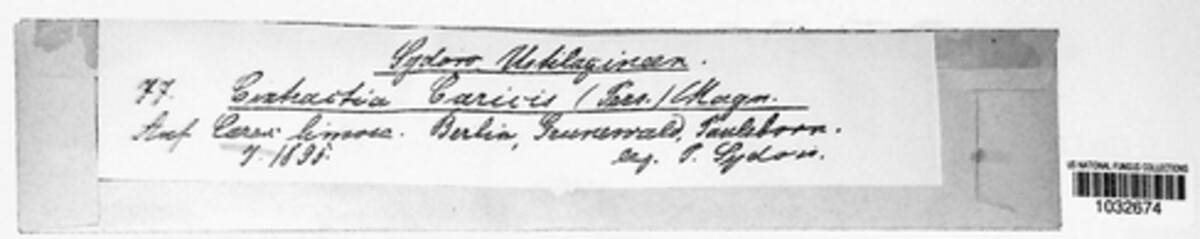 Sydow, Ustilagineen.
77. Cintractia Caricis (Pers.) Magn.
Auf Carex limosa. Berlin, Grunewald, Paulsborn.
7. 1895. leg. P. Sydow.
US NATIONAL FUNGUS COLLECTIONS
1032674